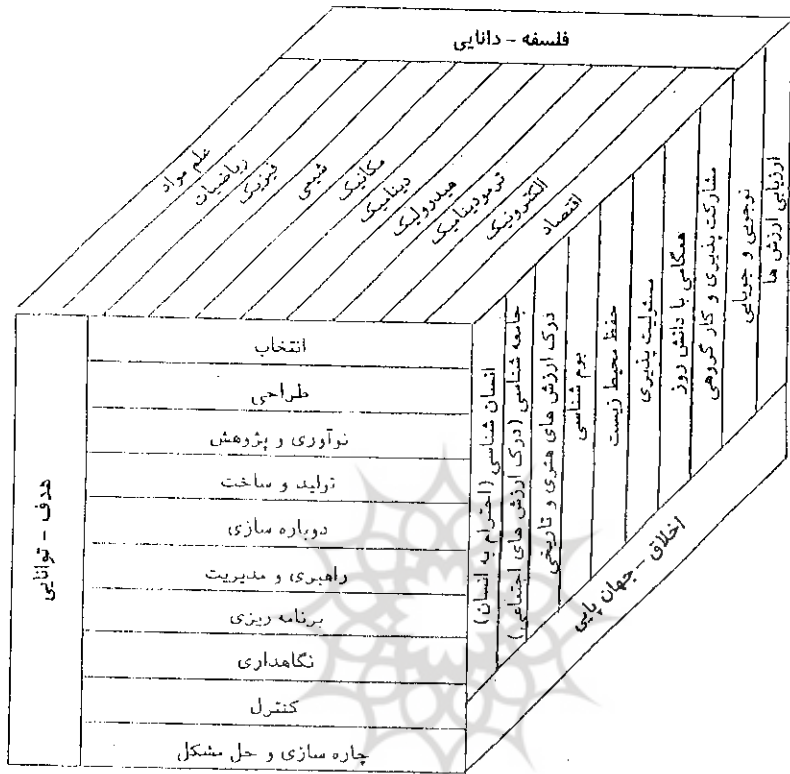 فلسفه - دانایی
علم مواد
ریاضیات
فیزیک
شیمی
مکانیک
دینامیک
هیدرولیک
ترمودینامیک
الکترونیک
اقتصاد
هدف - توانایی
انتخاب
طراحی
نوآوری و پژوهش
تولید و ساخت
دوباره سازی
راهبری و مدیریت
برنامه ریزی
نگاهداری
کنترل
چاره سازی و حل مشکل
انسان شناسی (احترام به انسان)
جامعه شناسی (درک ارزش های اجتماعی)
درک ارزش های هنری و تاریخی
بوم شناسی
حفظ محیط زیست
مسئولیت پذیری
همگامی با دانش روز
مشارکت پذیری و کار گروهی
نوجویی و جویایی
ارزیابی ارزش ها
اخلاق - جهان پایی